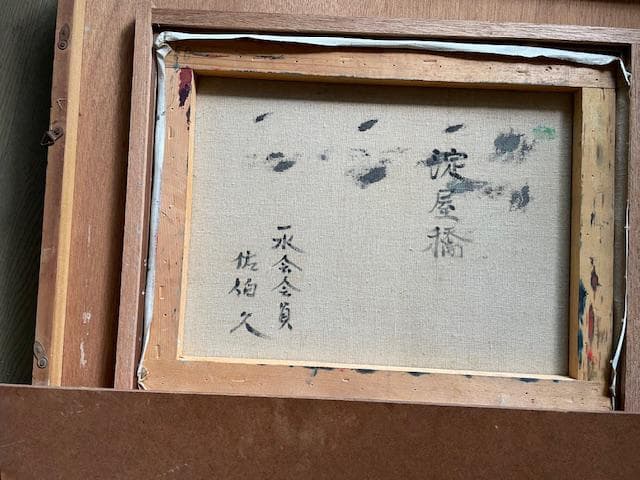 淀屋橋
一水会会員
佐伯久